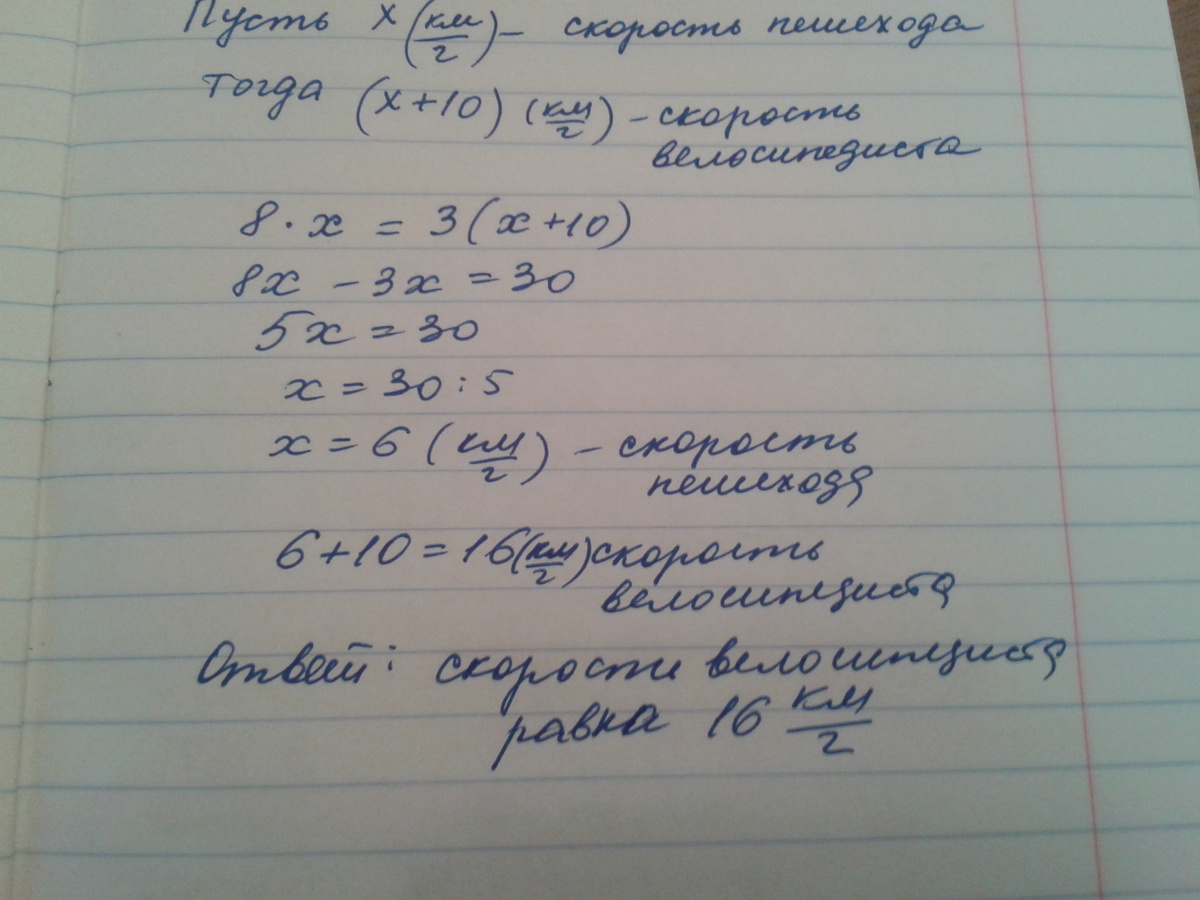 Пусть х (км/ч) – скорость пешехода
Тогда (х+10) (км/ч) – скорость
велосипедиста
8·х = 3(х+10)
8х – 3х = 30
5х = 30
х = 30:5
х = 6 (км/ч) – скорость
пешехода
6+10=16(км/ч) скорость
велосипедиста
Ответ: скорости велосипедиста
равна 16 км/ч